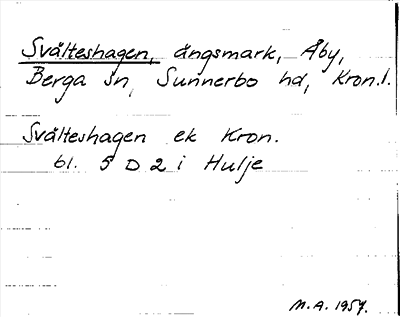 Svälteshagen, ängsmark, Åby,
Berga sn, Sunnerbo hd, Kron.l.
Svälteshagen ek Kron.
bl. 5 D 2 i Hulje
M.A. 1957.